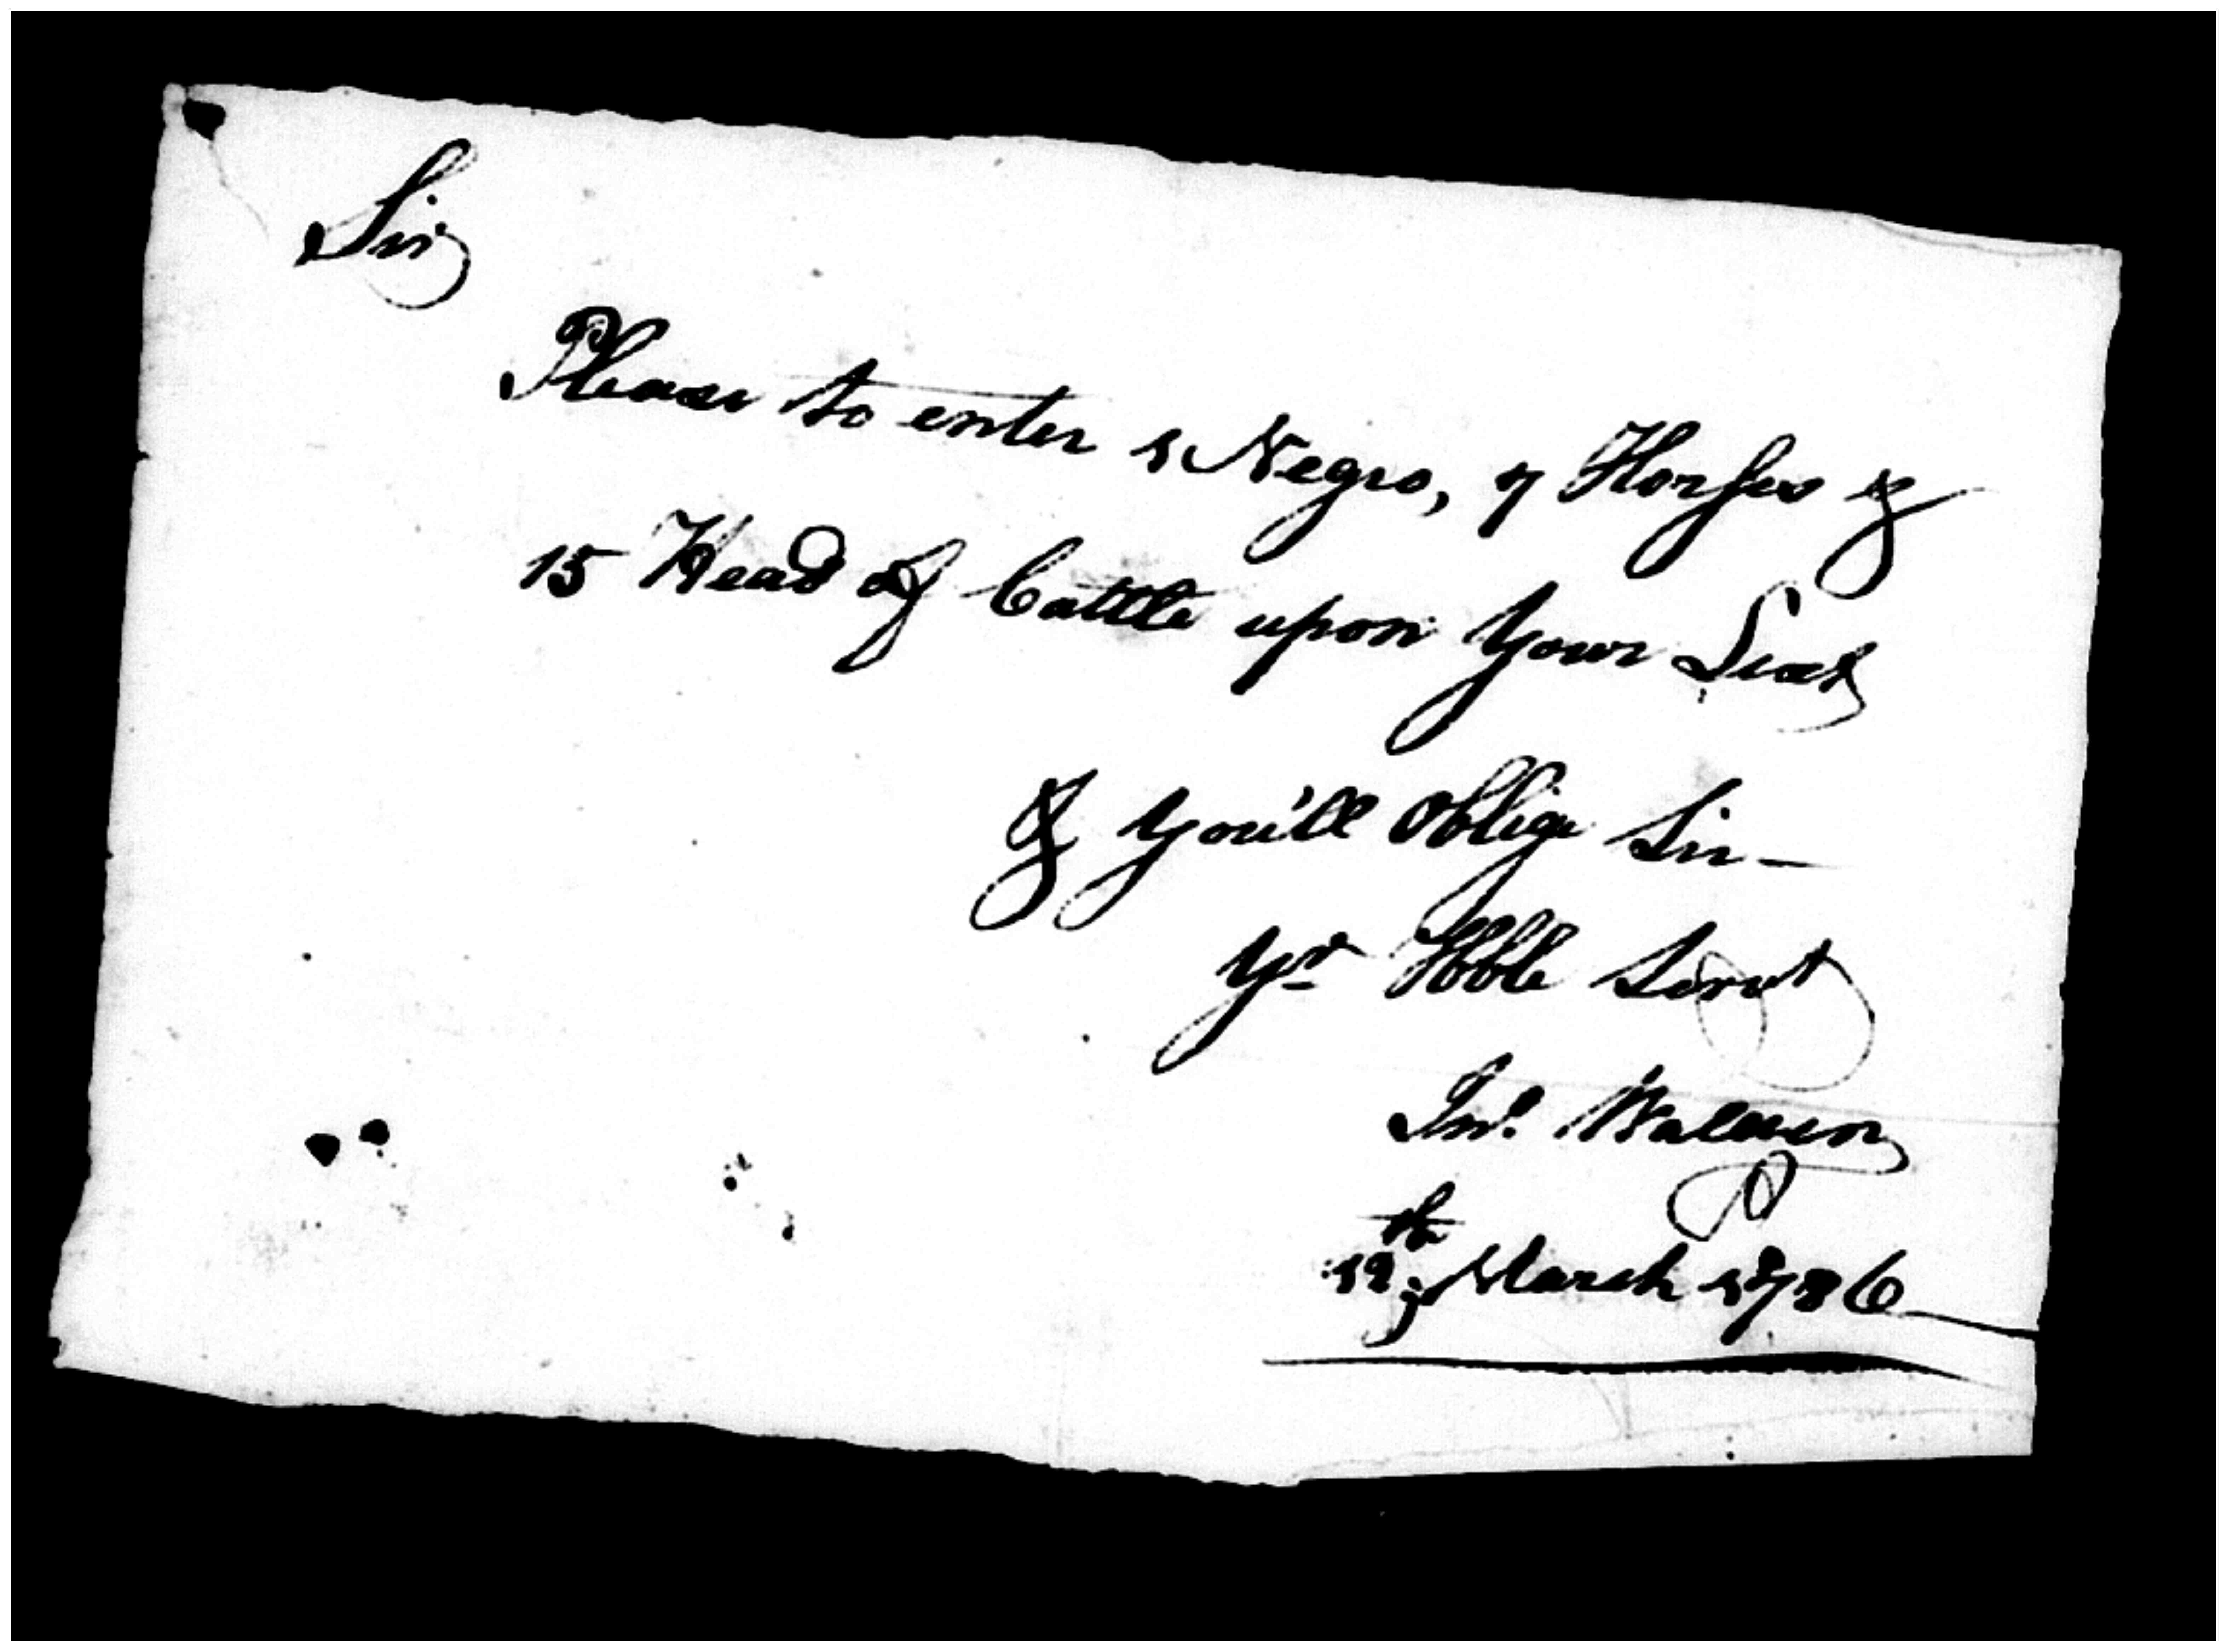 Sir
Please to enter 1 Negro, 7 Horses &
15 Head of Cattle upon Your List
& You'll Oblige Sir —
Yr Hble Servt
Jno.
12th March 1786